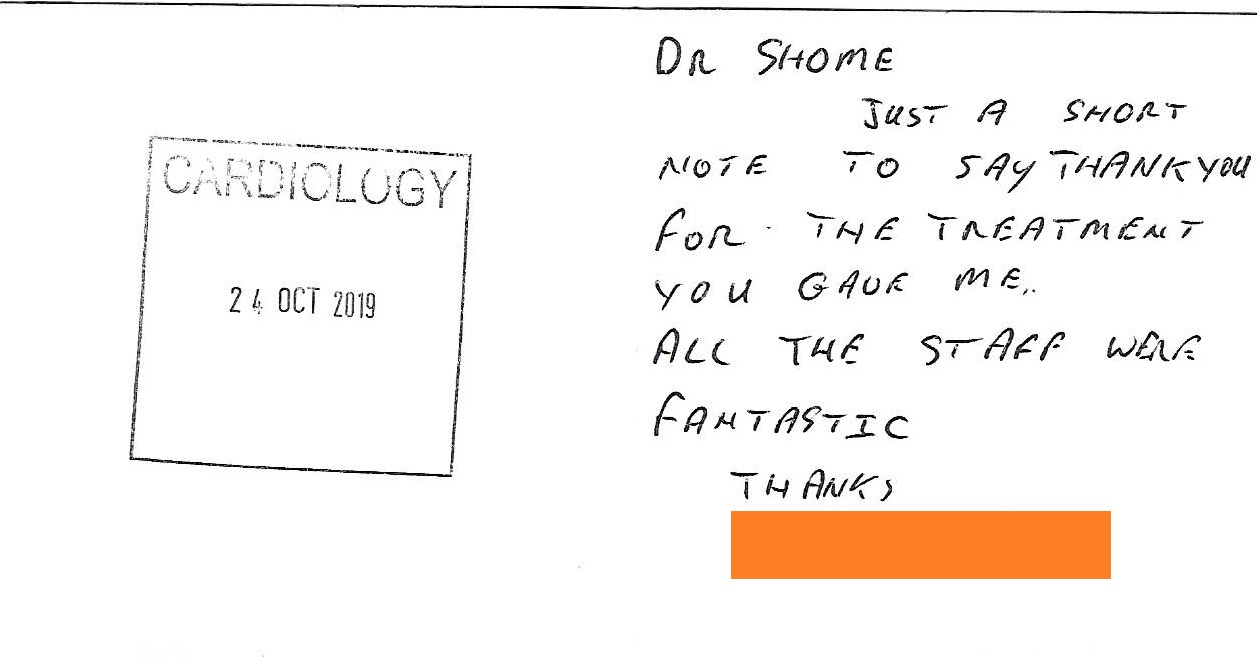 CARDIOLOGY
24 OCT 2019
DR SHOME
JUST A SHORT
NOTE TO SAY THANKYOU
FOR THE TREATMENT
YOU GAVE ME.
ALL THE STAFF WERE
FANTASTIC
THANKS